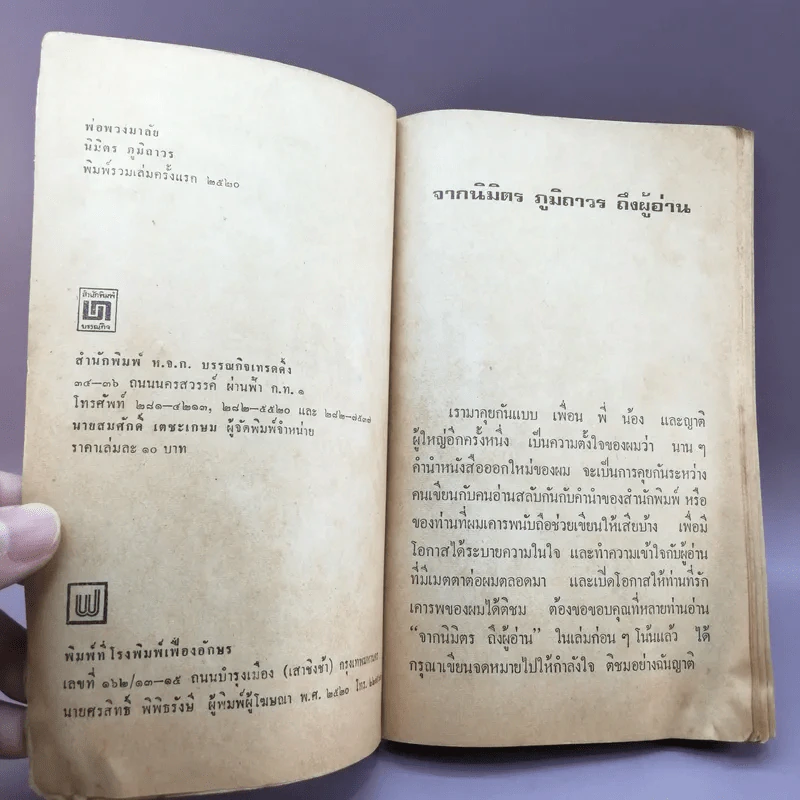 พ่อพวงมาลัย
นิมิตร ภูมิถาวร
พิมพ์รวมเล่มครั้งแรก ๒๕๒๐
สำนักพิมพ์
บรรณกิจ
สำนักพิมพ์ ห.จ.ก. บรรณกิจเทรดดิ้ง
๓๔—๓๖ ถนนนครสวรรค์ ผ่านฟ้า ก.ท. ๑
โทรศัพท์ ๒๘๑—๔๒๑๓, ๒๘๒—๕๕๒๐ และ ๒๘๒—๗๕๓๗
นายสมศักดิ์ เตชะเกษม ผู้จัดพิมพ์จำหน่าย
ราคาเล่มละ ๑๐ บาท
พิมพ์ที่โรงพิมพ์เฟื่องอักษร
เลขที่ ๑๖๒/๑๓—๑๕ ถนนบำรุงเมือง (เสาชิงช้า) กรุงเทพมหานคร
นายศรสิทธิ์ พิพิธรังษี ผู้พิมพ์ผู้โฆษณา พ.ศ. ๒๕๒๐ โทร.
จากนิมิตร ภูมิถาวร ถึงผู้อ่าน
เรามาคุยกันแบบ เพื่อน พี่ น้อง และญาติ
ผู้ใหญ่อีกครั้งหนึ่ง เป็นความตั้งใจของผมว่า นาน ๆ
คำนำหนังสือออกใหม่ของผม จะเป็นการคุยกันระหว่าง
คนเขียนกับคนอ่านสลับกันกับคำนำของสำนักพิมพ์ หรือ
ของท่านที่ผมเคารพนับถือช่วยเขียนให้เสียบ้าง เพื่อมี
โอกาสได้ระบายความในใจ และทำความเข้าใจกับผู้อ่าน
ที่มีเมตตาต่อผมตลอดมา และเปิดโอกาสให้ท่านที่รัก
เคารพของผมได้ติชม ต้องขอขอบคุณที่หลายท่านอ่าน
“จากนิมิตร ถึงผู้อ่าน” ในเล่มก่อน ๆ โน้นแล้ว ได้
กรุณาเขียนจดหมายไปให้กำลังใจ ติชมอย่างฉันญาติ